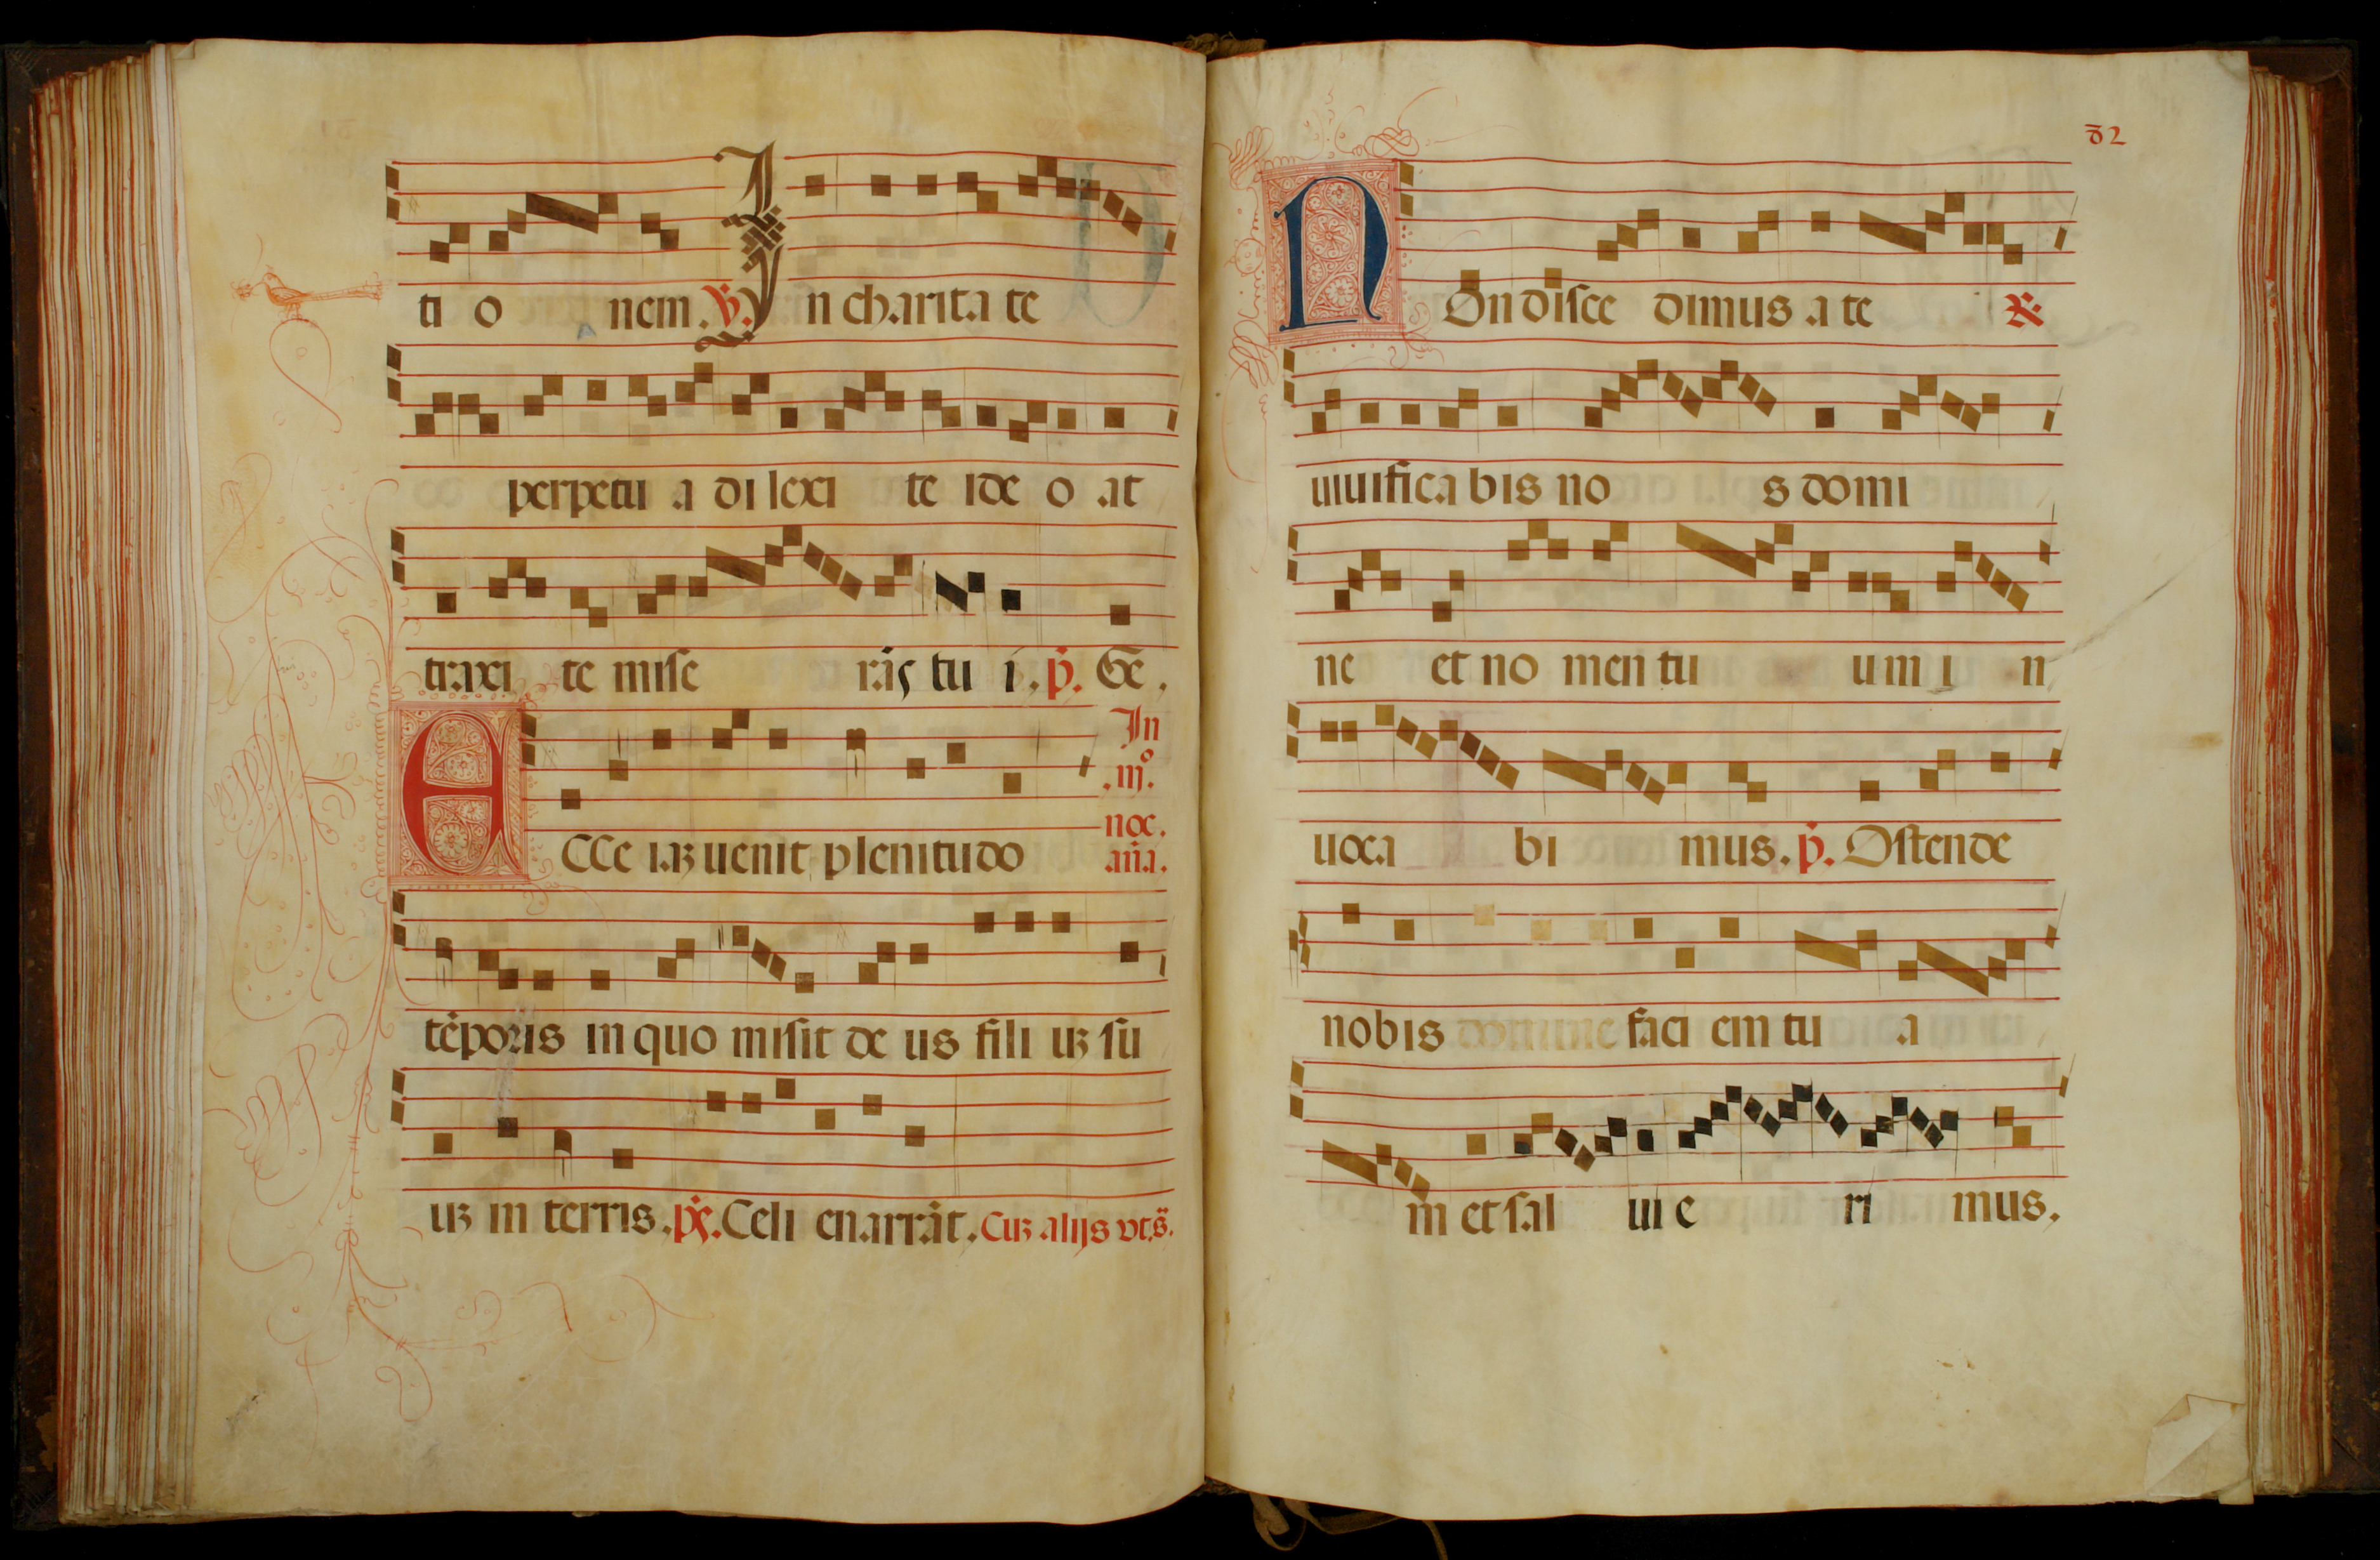 ti o nem. ℣. In charitate
perpetu a di lexi te ide o at
traxi te mise rās tu i. p̄. Ecce.
ECCe iaʒ uenit plenitudo
In
.iijº.
noc.
aña.
tēporis in quo misit de us fili uʒ su
uʒ in terris. pṡ. Celi enarrāt. Cuʒ alijs vt.s̄.
NOn disce dimus a te ℟.
uiuifica bis no s domi
ne et no men tu um i n
uoca bi mus. p̄. Ostende
nobis domine faci em tu a
m et sal ui e ri mus.